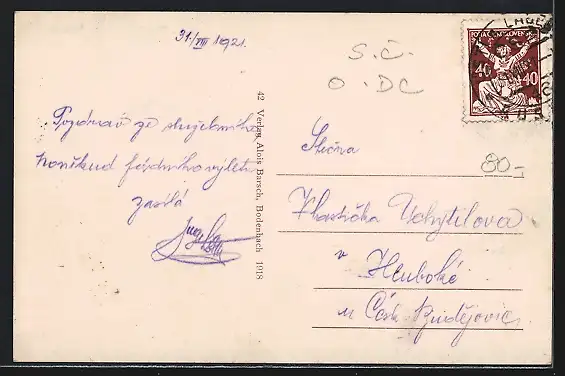 31./VIII 1921.
S.Č.
O.DC
POŠTA ČESKOSLOVENSKÁ
40 40
80-
Pozdrav ze služebního
poněkud jízdního výletu
zasílá
42 Verlag Alois Barsch, Bodenbach 1918
Slečna
Vlastička Uchytilova
v Hluboké
u Česk. Budějovic